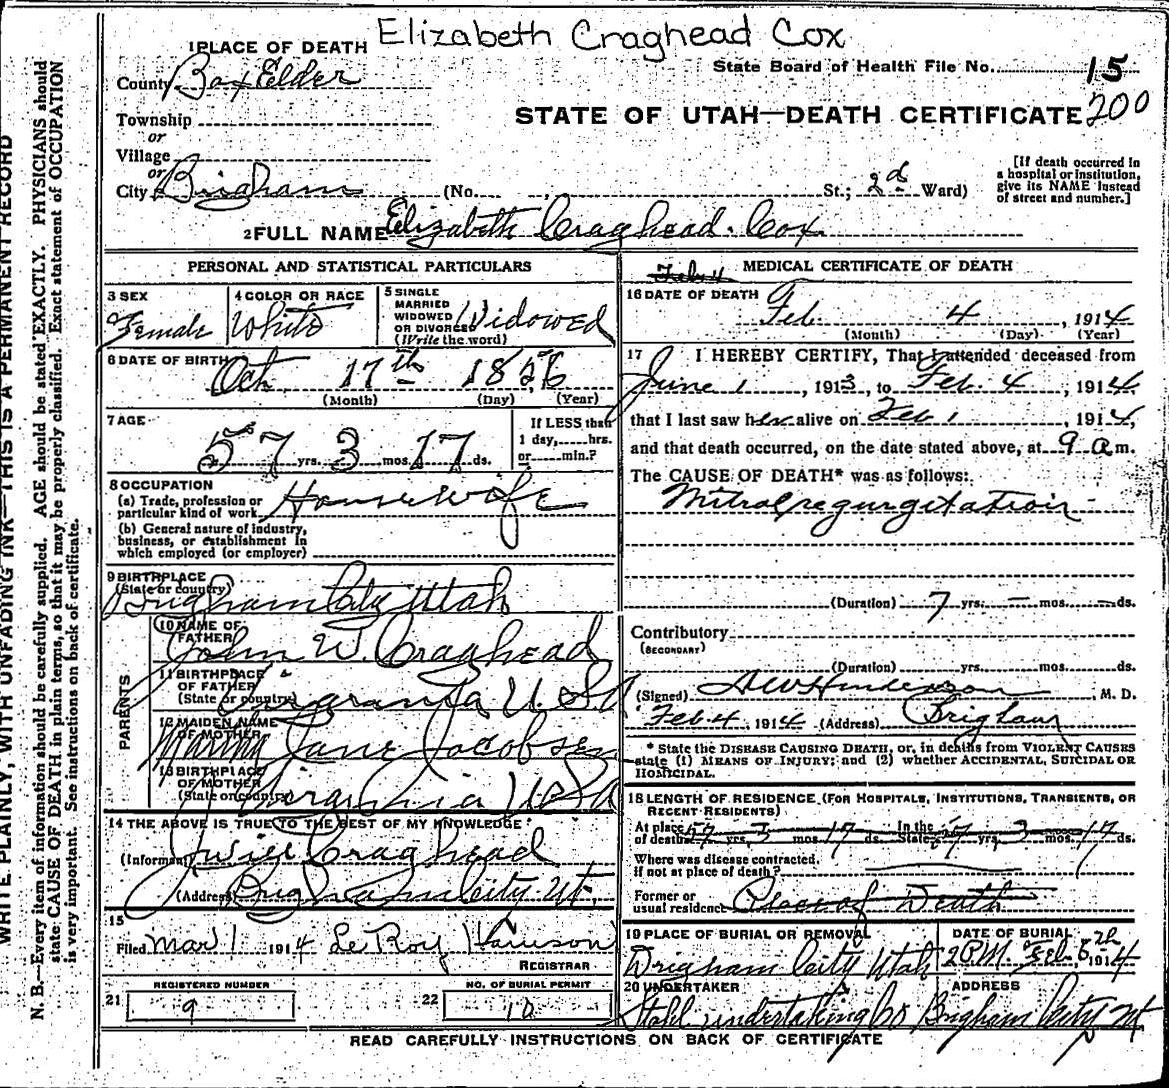 Elizabeth Craghead Cox
1 PLACE OF DEATH
State Board of Health File No. 15
County Box Elder
STATE OF UTAH—DEATH CERTIFICATE 200
Township
or
Village
or
City Brigham (No. St.; 2d Ward)
[If death occurred in a hospital or institution, give its NAME instead of street and number.]
2 FULL NAME Elizabeth Craghead Cox
PERSONAL AND STATISTICAL PARTICULARS
3 SEX Female
4 COLOR OR RACE White
5 SINGLE MARRIED WIDOWED OR DIVORCED (Write the word) Widowed
6 DATE OF BIRTH Oct 17th 1856
(Month) (Day) (Year)
7 AGE 57 yrs. 3 mos. 17 ds.
If LESS than 1 day, hrs. or min.?
8 OCCUPATION
(a) Trade, profession or particular kind of work Housewife
(b) General nature of industry, business, or establishment in which employed (or employer)
9 BIRTHPLACE (State or country) Brigham City Utah
PARENTS
10 NAME OF FATHER John W. Craghead
11 BIRTHPLACE OF FATHER (State or country) U S A
12 MAIDEN NAME OF MOTHER Jane Jacobsen
13 BIRTHPLACE OF MOTHER (State or country) Virginia U S A
14 THE ABOVE IS TRUE TO THE BEST OF MY KNOWLEDGE
(Informant) Craghead
(Address) Brigham City Ut.
15
Filed Mar 1 1914 Le Roy Harrison
REGISTRAR
21 REGISTERED NUMBER 9
22 NO. OF BURIAL PERMIT 10
MEDICAL CERTIFICATE OF DEATH
Feb 4
16 DATE OF DEATH
Feb. 4, 1914
(Month) (Day) (Year)
17 I HEREBY CERTIFY, That I attended deceased from
June 1, 1913, to Feb. 4, 1914,
that I last saw her alive on Feb 1, 1914,
and that death occurred, on the date stated above, at 9 a m.
The CAUSE OF DEATH* was as follows:
Mitral regurgitation
(Duration) 7 yrs. — mos. — ds.
Contributory
(SECONDARY)
(Duration) yrs. mos. ds.
(Signed) Henderson M. D.
Feb 4, 1914 (Address) Brigham
* State the DISEASE CAUSING DEATH, or, in deaths from VIOLENT CAUSES state (1) MEANS OF INJURY; and (2) whether ACCIDENTAL, SUICIDAL OR HOMICIDAL.
18 LENGTH OF RESIDENCE (FOR HOSPITALS, INSTITUTIONS, TRANSIENTS, OR RECENT RESIDENTS)
At place of death 57 yrs. 3 mos. 17 ds. In the State 57 yrs. 3 mos. 17 ds.
Where was disease contracted, if not at place of death?
Former or usual residence Place of Death
19 PLACE OF BURIAL OR REMOVAL Brigham City Utah
DATE OF BURIAL 2 P.M. Feb 6th 1914
20 UNDERTAKER Stohl undertaking Co
ADDRESS Brigham City Ut
READ CAREFULLY INSTRUCTIONS ON BACK OF CERTIFICATE
WRITE PLAINLY, WITH UNFADING INK—THIS IS A PERMANENT RECORD
N. B.—Every item of information should be carefully supplied. AGE should be stated EXACTLY. PHYSICIANS should
state CAUSE OF DEATH in plain terms, so that it may be properly classified. Exact statement of OCCUPATION
is very important. See instructions on back of certificate.